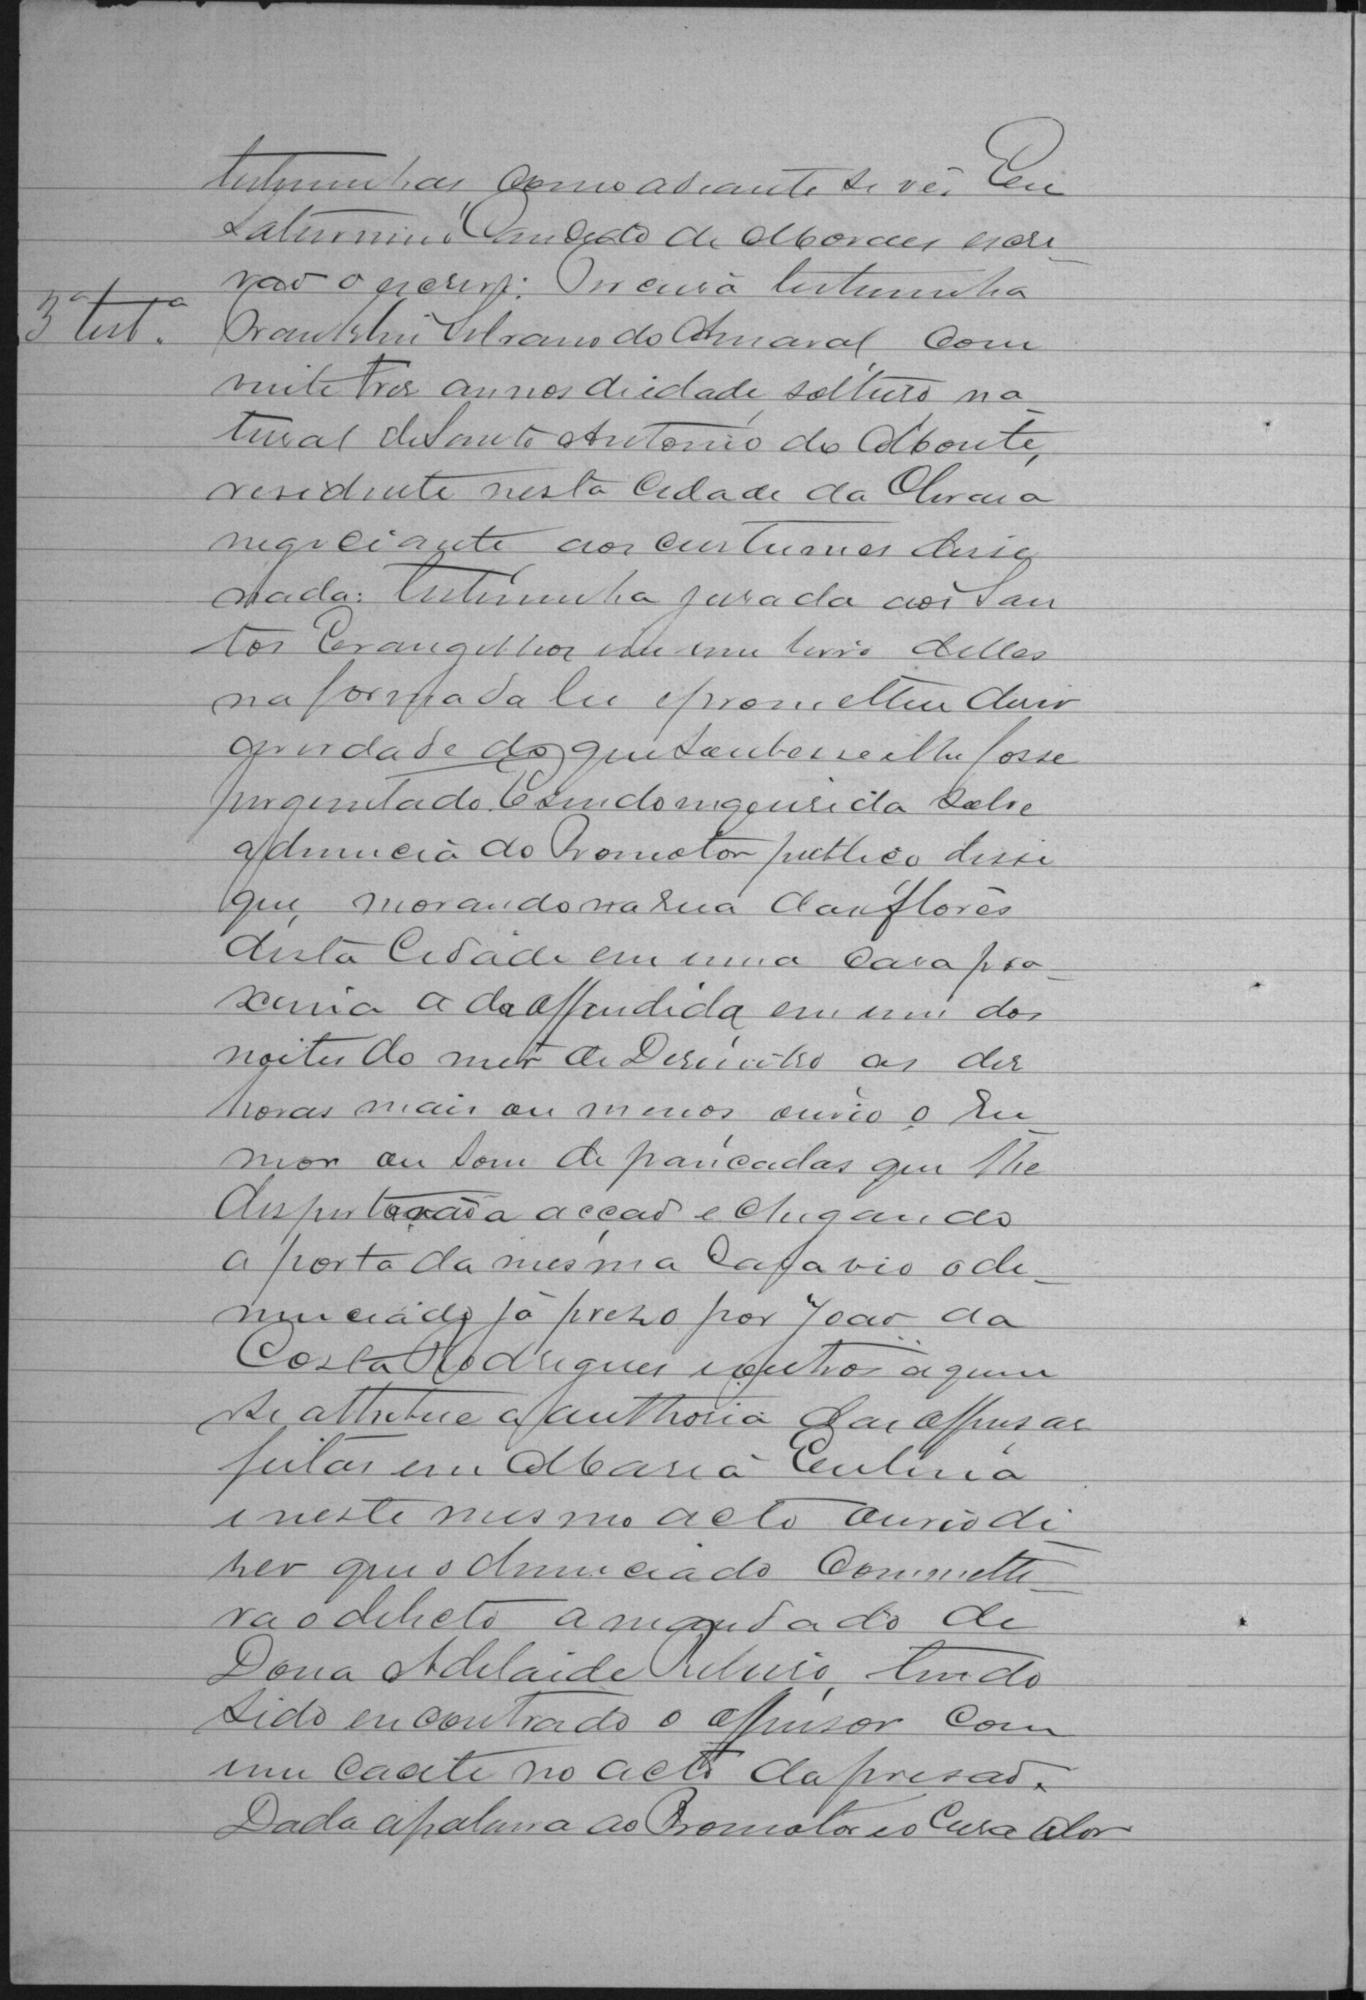 testemunhas, como adiante se vê. Eu
Saturnino Candido de Moraes escri-
vão o escrevi. Terceira testemunha
3ª test.ª
Franklin Silvano do Amaral, com
vinte tres annos de idade, solteiro na-
tural de Santo Antonio do Monte,
residente nesta Cidade da Oliveira
negociante aos custumes disse
nada: testemunha jurada aos San
tos Evangelhos em um livro delles
na forma da lei e prometteu diser
a verdade do que soubesse e lhe fosse
perguntado. E sendo inquerida sobre
a denuncia do Promotor publico disse
que, morando na rua das flores
desta Cidade em uma casa pro-
xima a da offendida em um das
noites do mes de Desembro as des
horas mais ou menos, ouvio o ru-
mor ou som de pancadas que lhe
despertarão a acção e chegando
a porta da mesma casa vio o de-
nunciado já preso por João da
Costa Rodrigues e outros a quem
se attribue a authoria das offensas
feitas em Maria
e neste mesmo acto ouvio di-
ser que o denunciado commette-
ra o delicto a mandado de
Dona Adelaide Ribeiro, tendo
sido encontrado o offensor com
um cacete no acto da presão.
Dada a palavra ao Promotor e o Curador